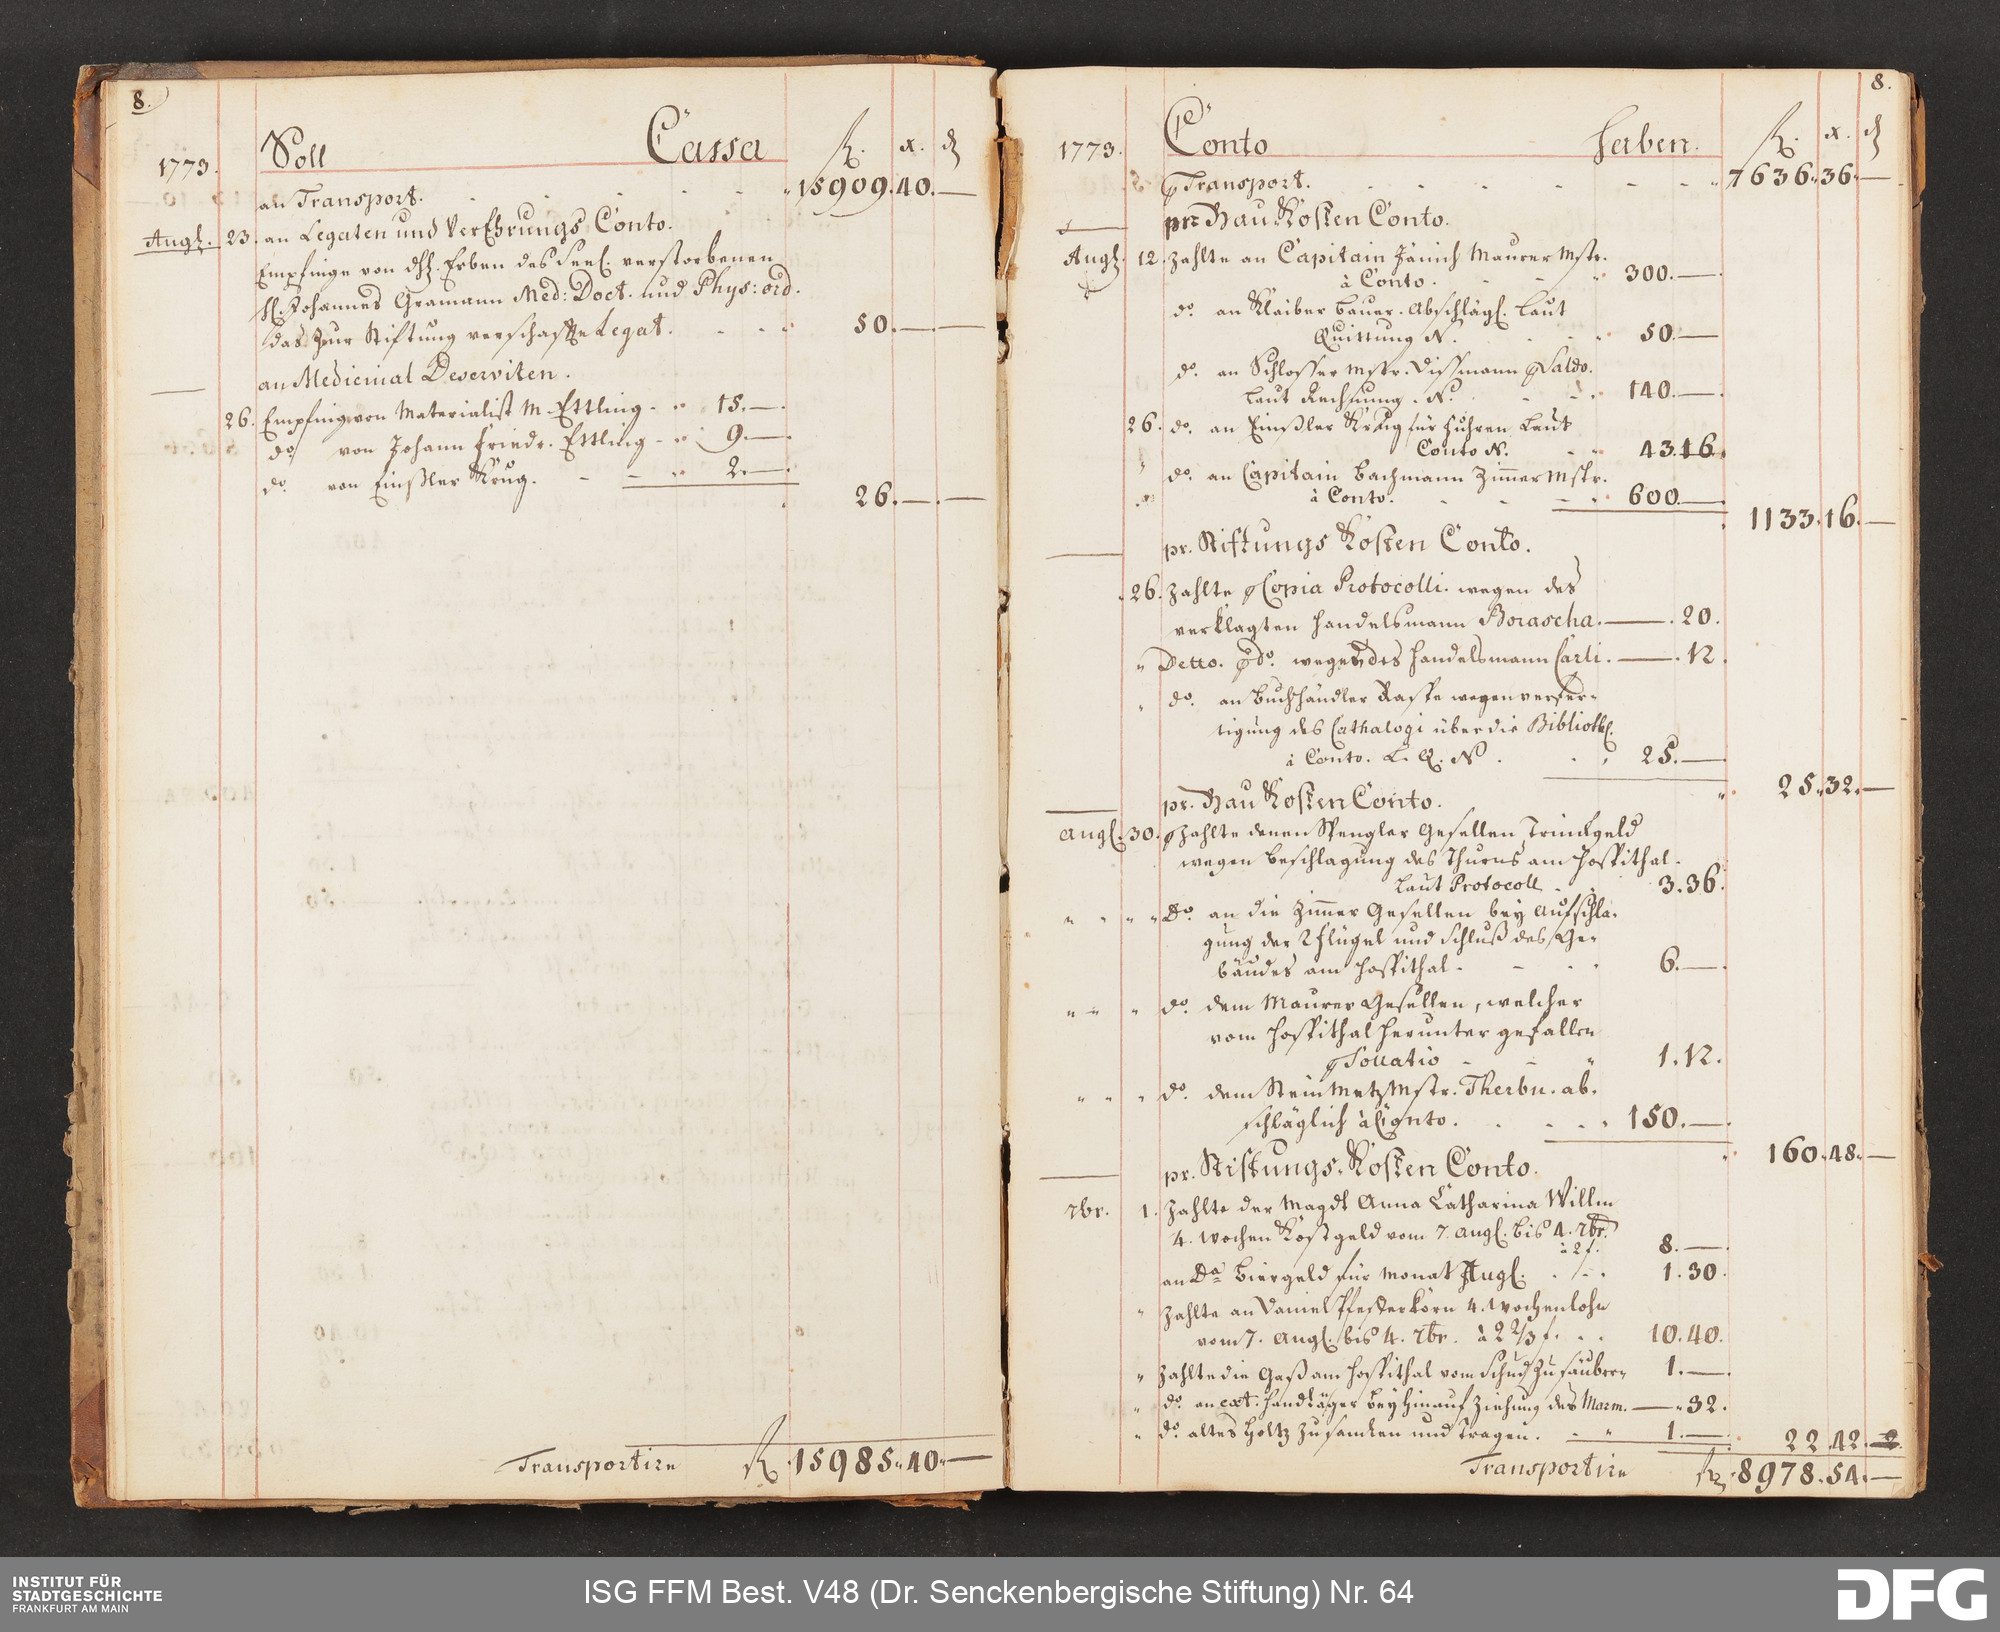 8.
1773.
Soll Cassa fl. x. d
an Transport. 15909. 40. —
Augs. 23. an Legaten und VerEhrungs Conto.
Empfinge von dhh. Erben des Seel. verstorbenen
H. Johannes Gramann Med: Doct. und Phys: ord.
das Zur Stiftung verschafte Legat. 50. — —
an Medicinal Deserviten.
26. Empfing von Materialist M. Ettling 15. —
do. von Johann Friedr. Ettling 9. —
do. von Krug. 2. —
26. — —
Transportire fl. 15985. 40. —
8.
1773. Conto Haben. fl. x. d
p Transport. 7636. 36. —
pr. Bau Kosten Conto.
Augs. 12. Zahlte an Capitain Jänich Maurer Mstr.
à Conto. 300. —
do. an Kleiber Bauer. Abschlägl. Laut
Quittung N. 50. —
do. an Schlosser Mstr. Dissmann p Saldo.
Laut Rechnung. N. 140. —
26. do. an Krug für Fuhren Laut
Conto N. 43. 16.
" do. an Capitain Bachmann Zimmer Mstr.
à Conto. 600. —
1133. 16. —
pr. Stiftungs Kosten Conto.
26. Zahlte p Copia Protocolli. wegen des
verklagten Handelsmann Borascha. — 20.
" Detto. p do. wegen des Handelsmann Carli. — 12.
" do. an Buchhändler Raspe wegen verfer-
tigung des Cathalogi über die Biblioth.
à Conto. L. Q. N. 25. —
25. 32. —
pr. Bau Kosten Conto.
Augs. 30. p Zahlte denen Spengler Gesellen Trinkgeld
wegen Beschlagung des Thurns am Hospithal.
Laut Protocoll 3. 36.
" " " " Do. an die Zimmer Gesellen bey Aufschla-
gung der 2 Flügel und Schluß des Ge-
bäudes am Hospithal. 6. —
" " " do. dem Maurer Gesellen, welcher
vom Hospithal herunter gefallen
p 1. 12.
" " " do. dem Steinmetz Mstr. Therbu. ab.
schläglich à Conto. 150. —
160. 48. —
pr. Stiftungs Kosten Conto.
7br. 1. Zahlte der Magdt Anna Catharina Willm
4. Wochen Kostgeld vom 7. Augs. bis 4. 7br.
à 2 f. 8. —
an Da Biergeld für Monat Augs. 1. 30.
" Zahlte an Daniel Pfefferkorn 4. Wochenlohn
vom 7. Augs. bis 4. 7br. à 2 2/3 f. 10. 40.
" Zahlte die Gaß am Hospithal vom Schud zu säubern 1. —
" do. an ext: Handläger bey Hinauf Ziehung des Marm. — 32.
" do. altes Holtz zusamen und Tragen. 1. —
22 42
Transportire fl. 8978. 54. —
INSTITUT FÜR
STADTGESCHICHTE
FRANKFURT AM MAIN
ISG FFM Best. V48 (Dr. Senckenbergische Stiftung) Nr. 64
DFG